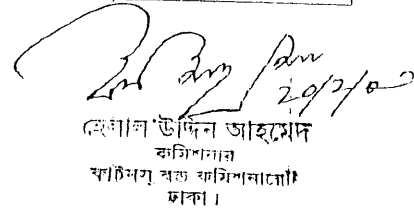 হেলাল উদ্দিন আহমেদ
কমিশনার
কাস্টমস্ বন্ড কমিশনারেট
ঢাকা।